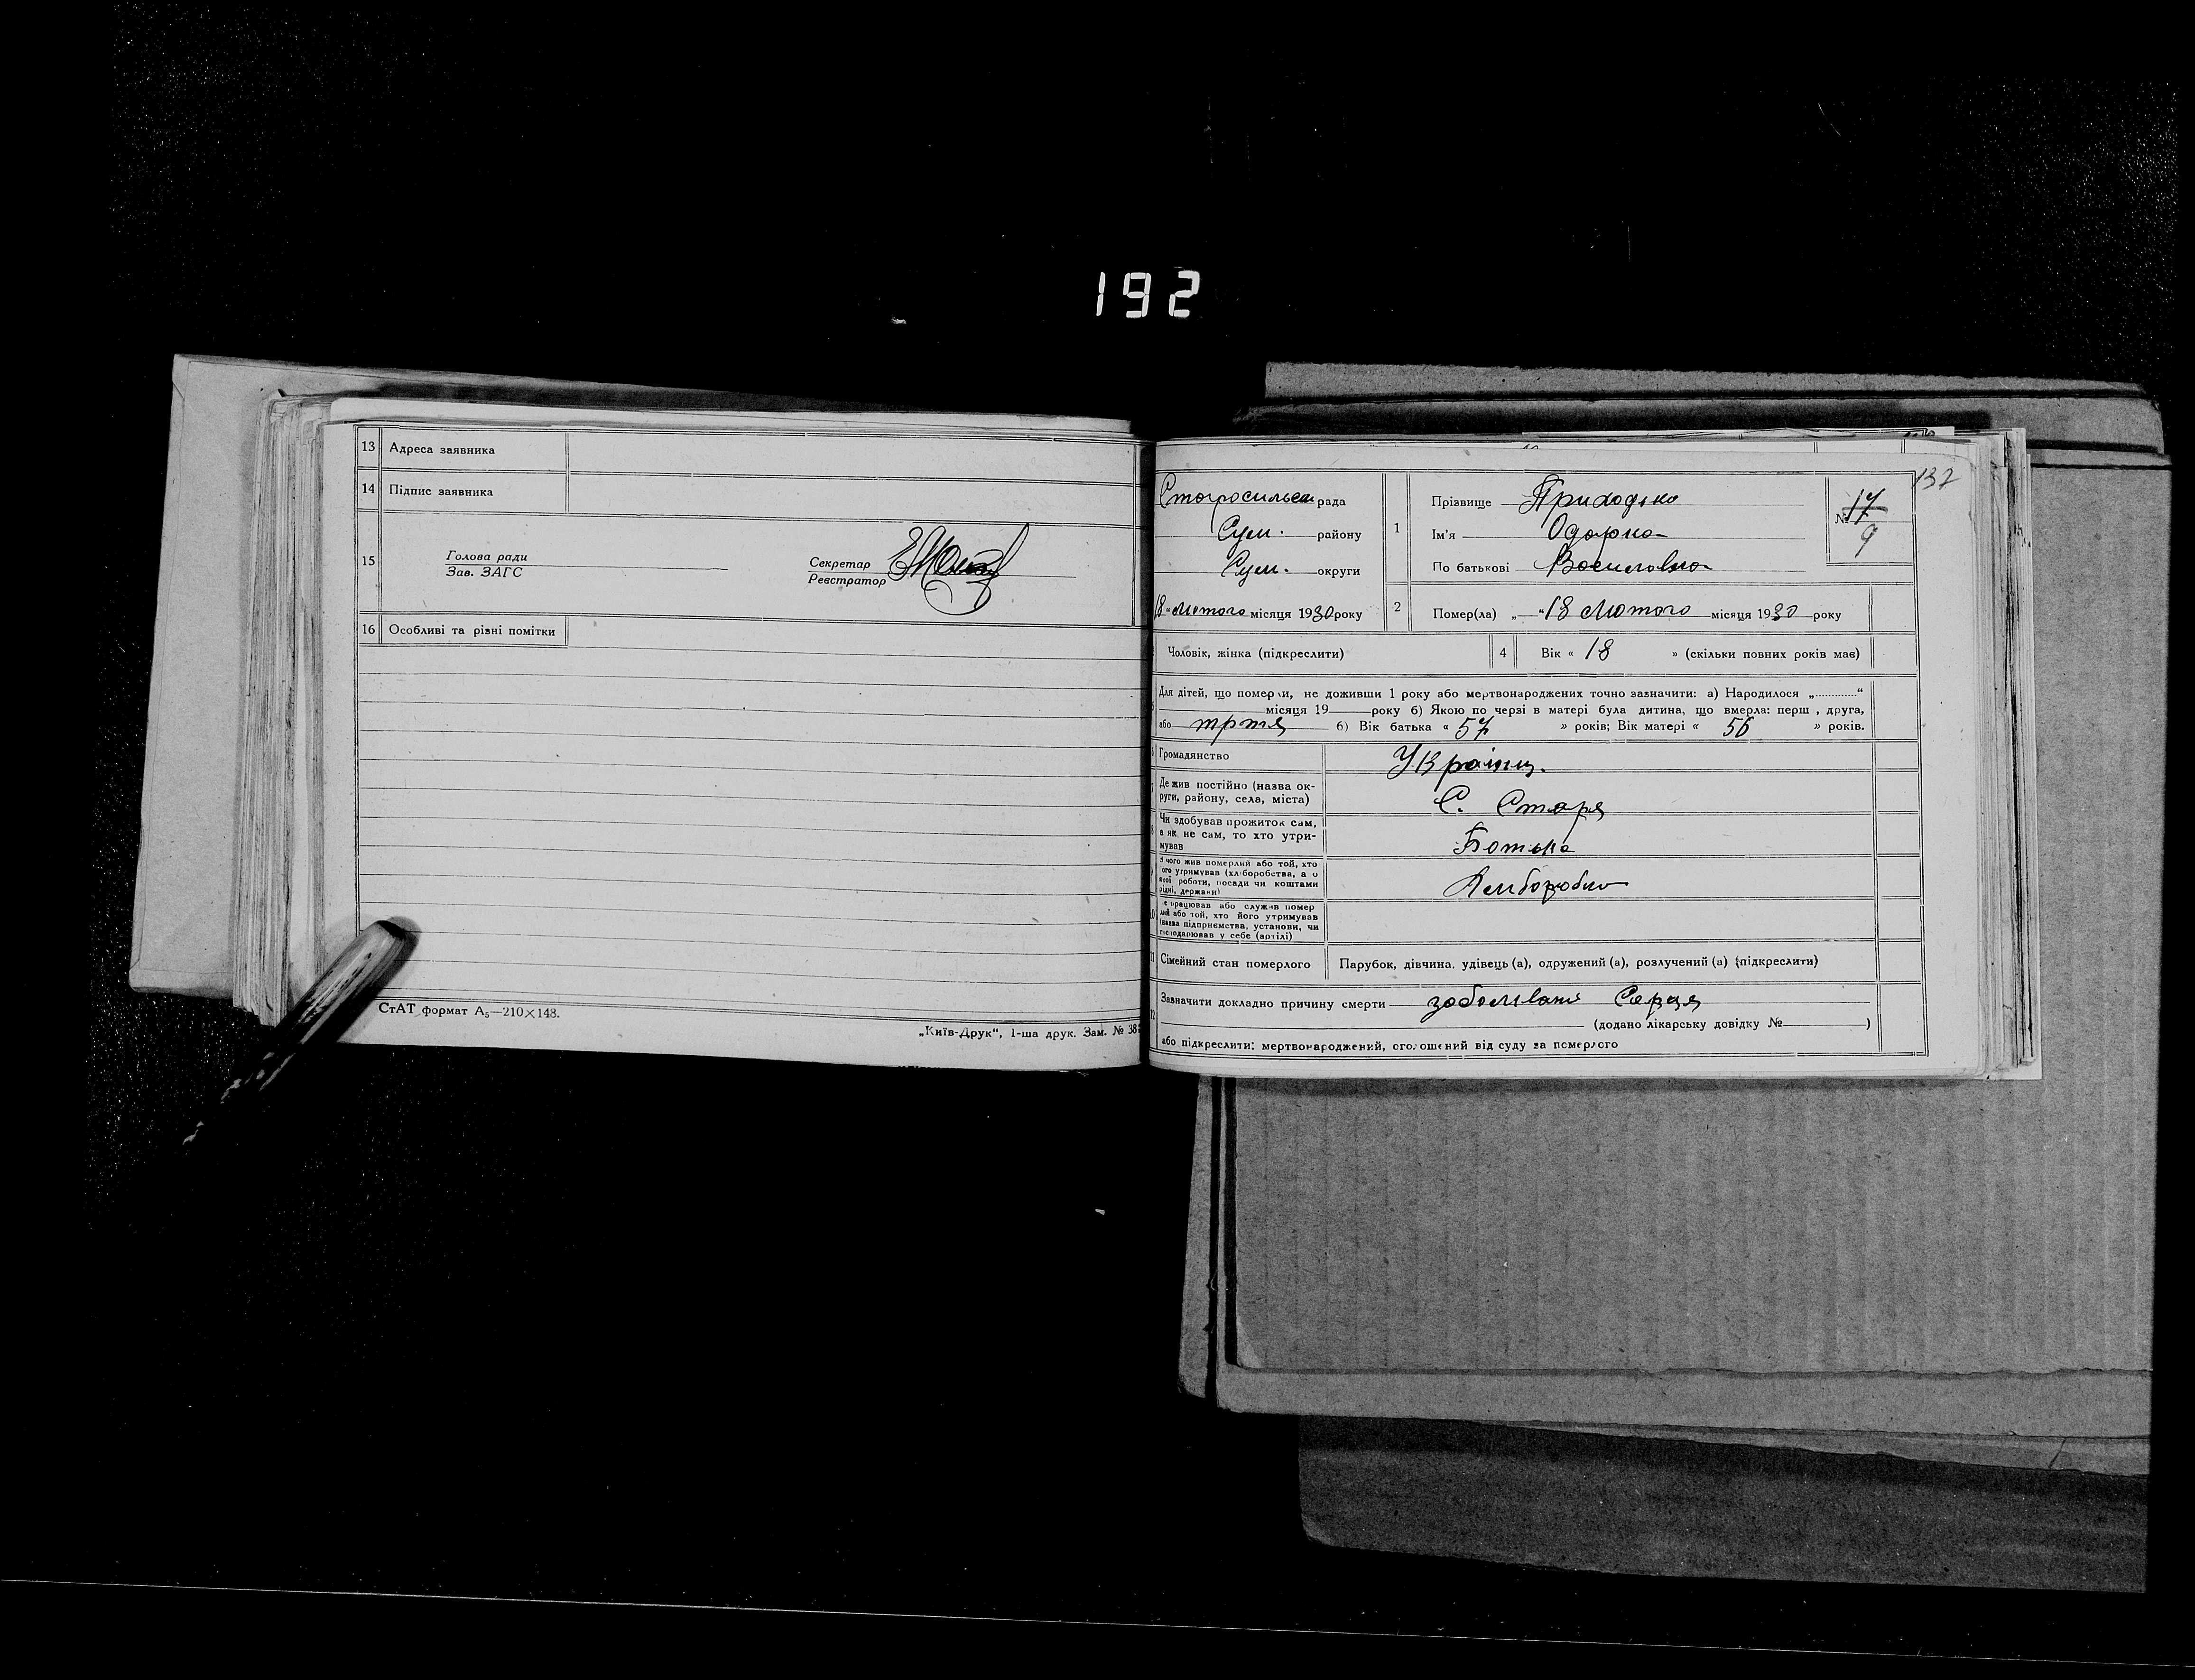 192
13 Адреса заявника
14 Підпис заявника
15 Голова ради
Зав. ЗАГС
Секретар
Реєстратор
16 Особливі та різні помітки
СтАТ формат А5—210×148.
„Київ-Друк“, 1-ша друк. Зам. № 38
137
рада
Сум. району
Сум. округи
18 „ Лютого місяця 1930 року
1 Прізвище Приходько
Ім'я Одарка
По батькові Василовна
№ 17
9
2 Помер(ла) „ “ 18 Лютого місяця 1930 року
Чоловік, жінка (підкреслити)
4 Вік « 18 » (скільки повних років має)
Для дітей, що померли, не доживши 1 року або мертвонароджених точно зазначити: а) Народилося „.............“
місяця 19 року б) Якою по черзі в матері була дитина, що вмерла: перш , друга,
або тртя б) Вік батька « 57 » років; Вік матері « 56 » років.
6 Громадянство Україн.
Де жив постійно (назва ок-
руги, району, села, міста) С. Старя
8 Чи здобував прожиток сам,
а як не сам, то хто утри-
мував Батька
з чого жив померлий або той, хто
ого утримував (хліборобства, а о
якої роботи, посади чи коштами
рідні, держави) Хлібороб
10 е працював або служив помер
лий або той, хто його утримував
(назва підприємства, установи, чи
господарював у себе (артілі)
11 Сімейний стан померлого Парубок, дівчина, удівець (а), одружений (а), розлучений (а) (підкреслити)
12 Зазначити докладно причину смерти заболівані Серця
(додано лікарську довідку № )
або підкреслити: мертвонароджений, оголошений від суду за померлого